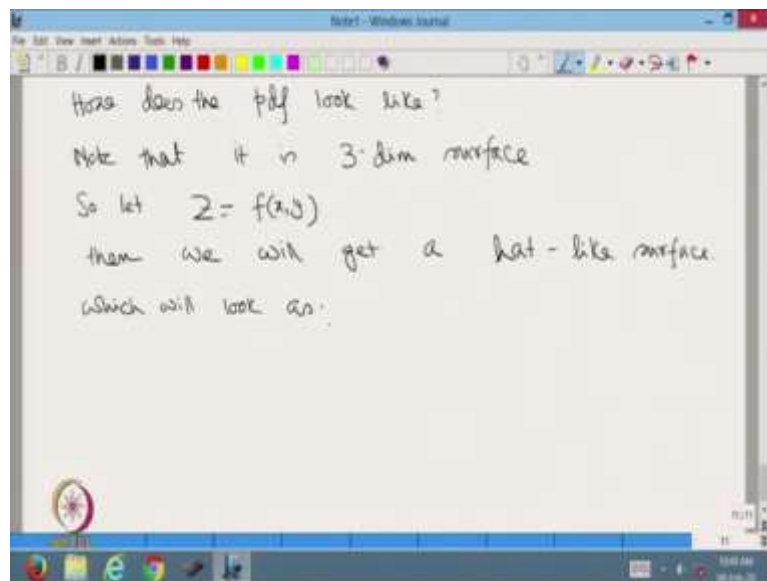 Note1 - Windows Journal
File Edit View Insert Actions Tools Help
How does the pdf look like?
Note that it is 3-dim surface
So let Z = f(x,y)
then we will get a hat-like surface.
which will look as.